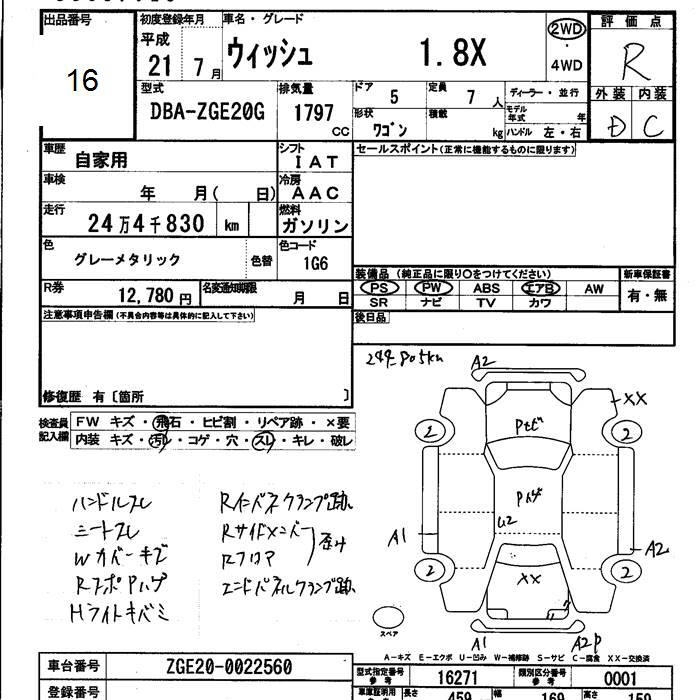 出品番号
16
初度登録年月
平成
21 7月
車名・グレード
ウィッシュ 1.8X
2WD
・
4WD
評価点
R
外装 内装
D C
型式
DBA-ZGE20G
排気量
1797
CC
ドア
5
定員
7人
ディーラー・並行
モデル年式 年
形状
ワゴン
積載
kg
ハンドル 左・右
車歴
自家用
シフト
IAT
車検
年 月( 日)
冷房
AAC
走行
24万4千830 km
燃料
ガソリン
色
グレーメタリック
色替
色コード
1G6
R券
12,780円
名変通知期限
月 日
セールスポイント(正常に機能するものに限ります)
装備品 (純正品に限り○をつけてください)
新車保証書
PS PW ABS エアB AW
有・無
SR ナビ TV カワ
後日品
注意事項申告欄(不具合内容等は具体的に記入して下さい)
修復歴 有〔箇所 〕
検査員記入欄
FW キズ・飛石・ヒビ割・リペア跡・×要
内装 キズ・汚レ・コゲ・穴・スレ・キレ・破レ
244805km
A2
XX
2 2
Pセビ
Pハゲ
U2
A1 A2
2 2
XX
A1 A2P
スペア
ハンドルスレ
シートスレ
Wカバーキズ
RフポPハゲ
Hライトキバミ
Rインパネクランプ跡
Rサイドメンバー
Rフロア
歪み
エンドパネルクランプ跡
A-キズ E-エクボ U-凹み W-補修跡 S-サビ C-腐食 XX-交換済
車台番号
ZGE20-0022560
型式指定番号
参考
16271
類別区分番号
参考
0001
登録番号
車庫証明用
長さ
459
幅
169
高さ
159